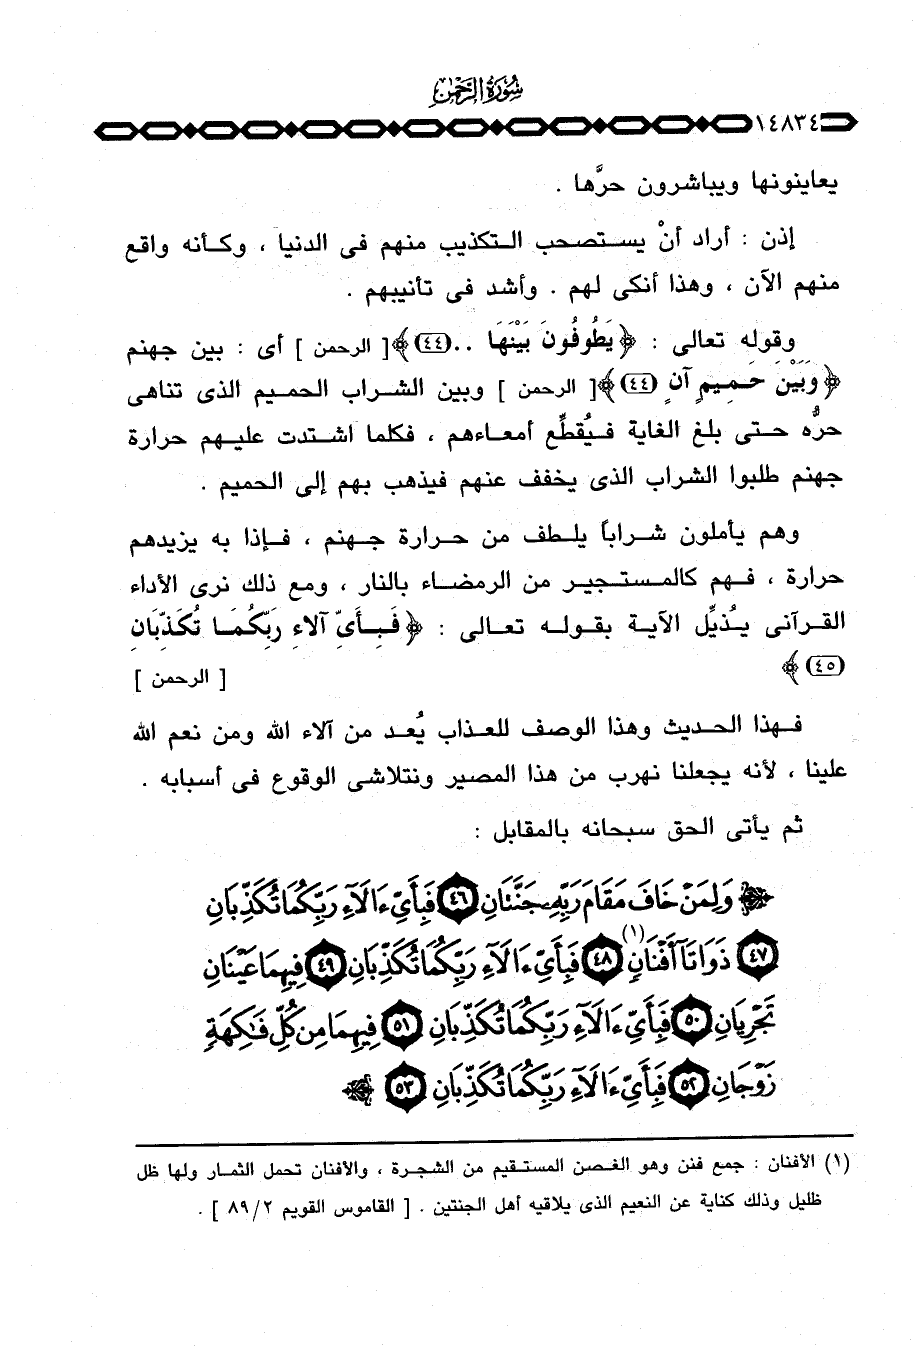 سُورَةُ الرَّحْمٰن
١٤٨٣٤
يعاينونها ويباشرون حرَّها .
إذن : أراد أنْ يستصحب التكذيب منهم فى الدنيا ، وكأنه واقع
منهم الآن ، وهذا أنكى لهم . وأشد فى تأنيبهم .
وقوله تعالى : ﴿يَطُوفُونَ بَيْنَهَا .. (٤٤)﴾[ الرحمن ] أى : بين جهنم
﴿وَبَيْنَ حَمِيمٍ آنٍ (٤٤)﴾[ الرحمن ] وبين الشراب الحميم الذى تناهى
حرُّه حتى بلغ الغاية فيُقطِّع أمعاءهم ، فكلما اشتدت عليهم حرارة
جهنم طلبوا الشراب الذى يخفف عنهم فيذهب بهم إلى الحميم .
وهم يأملون شراباً يلطف من حرارة جهنم ، فإذا به يزيدهم
حرارة ، فهم كالمستجير من الرمضاء بالنار ، ومع ذلك نرى الأداء
القرآنى يُذيِّل الآية بقوله تعالى : ﴿فَبِأَىِّ آلاءِ رَبِّكُمَا تُكَذِّبَانِ
(٤٥)﴾ [ الرحمن ]
فهذا الحديث وهذا الوصف للعذاب يُعد من آلاء الله ومن نعم الله
علينا ، لأنه يجعلنا نهرب من هذا المصير ونتلاشى الوقوع فى أسبابه .
ثم يأتى الحق سبحانه بالمقابل :
﴿وَلِمَنْ خَافَ مَقَامَ رَبِّهِۦ جَنَّتَانِ ٤٦ فَبِأَيِّ ءَالَآءِ رَبِّكُمَا تُكَذِّبَانِ
٤٧ ذَوَاتَآ أَفْنَانٍ (١) ٤٨ فَبِأَيِّ ءَالَآءِ رَبِّكُمَا تُكَذِّبَانِ ٤٩ فِيهِمَا عَيْنَانِ
تَجْرِيَانِ ٥٠ فَبِأَيِّ ءَالَآءِ رَبِّكُمَا تُكَذِّبَانِ ٥١ فِيهِمَا مِن كُلِّ فَٰكِهَةٍ
زَوْجَانِ ٥٢ فَبِأَيِّ ءَالَآءِ رَبِّكُمَا تُكَذِّبَانِ ٥٣﴾
(١) الأفنان : جمع فنن وهو الغصن المستقيم من الشجرة ، والأفنان تحمل الثمار ولها ظل
ظليل وذلك كناية عن النعيم الذى يلاقيه أهل الجنتين . [ القاموس القويم ٨٩/٢ ] .